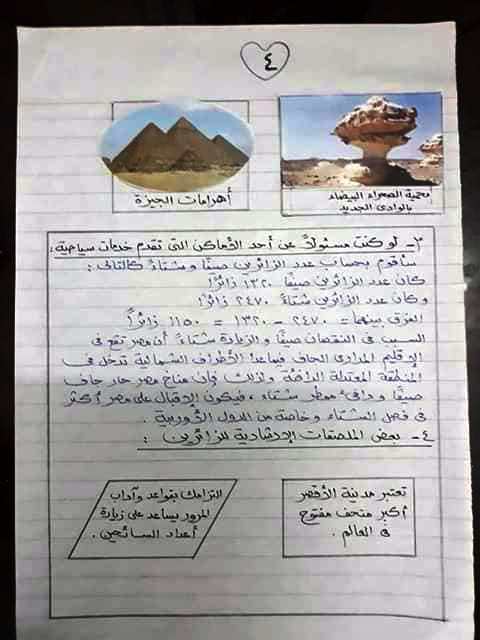 ٤
محمية الصحراء البيضاء
بالوادى الجديد
أهرامات الجيزة
٣- لو كنت مسئولاً عن أحد الأماكن التى تقدم خدمات سياحية :
سأقوم بحساب عدد الزائرين صيفًا وشتاءً كالتالى :
كان عدد الزائرين صيفًا ١٣٢٠ زائرًا
وكان عدد الزائرين شتاءً ٢٤٧٠ زائرًا
الفرق بينهما = ٢٤٧٠ - ١٣٢٠ = ١١٥٠ زائرًا
السبب فى النقصان صيفًا والزيادة شتاءً أن مصر تقع فى
الإقليم المدارى الجاف فيما عدا الأطراف الشمالية تدخل فى
المنطقة المعتدلة الدافئة ولذلك فإن مناخ مصر حار جاف
صيفًا ودافئ ممطر شتاء ، فيكون الإقبال على مصر أكثر
فى فصل الشتاء وخاصة من الدول الأوربية .
٤- بعض الملصقات الإرشادية للزائرين :
تعتبر مدينة الأقصر
أكبر متحف مفتوح
فى العالم .
التزامك بقواعد وآداب
المرور يساعد على زيادة
أعداد السائحين .